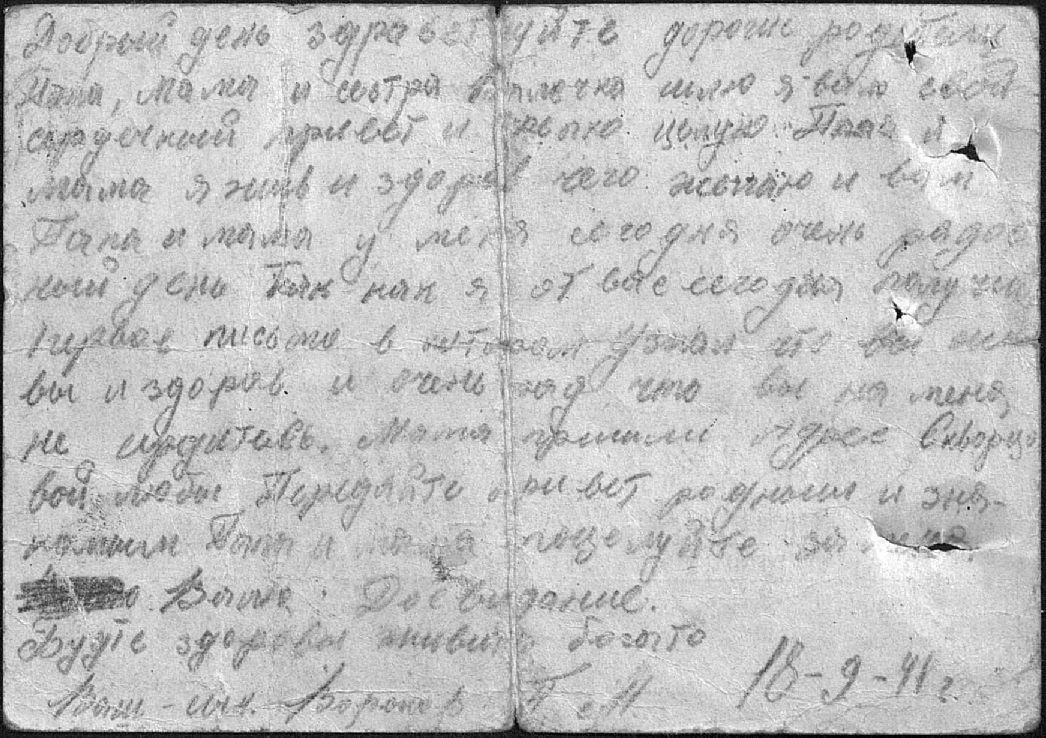 Добрый день здравствуйте дорогие родители
Папа, мама и сестра Валечка шлю я вам свой
сердечный привет и крепко целую Папа и
мама я жив и здоров чего желаю и вам
Папа и мама у меня сегодня очень радос
ный день Так как я от вас сегодня получил
первое письмо в котором узнал что вы жи
вы и здоров. и очень рад что вы на меня
не сердитесь. Мама пришли Адрес Скворцо
вой любы Передайте привет родным и зна-
комым Папа и мама поцелуйте за меня
Валю. Досвидание.
Будте здоровы живите богато
Ваш - сын. Воронов П М
18-9-41 г.